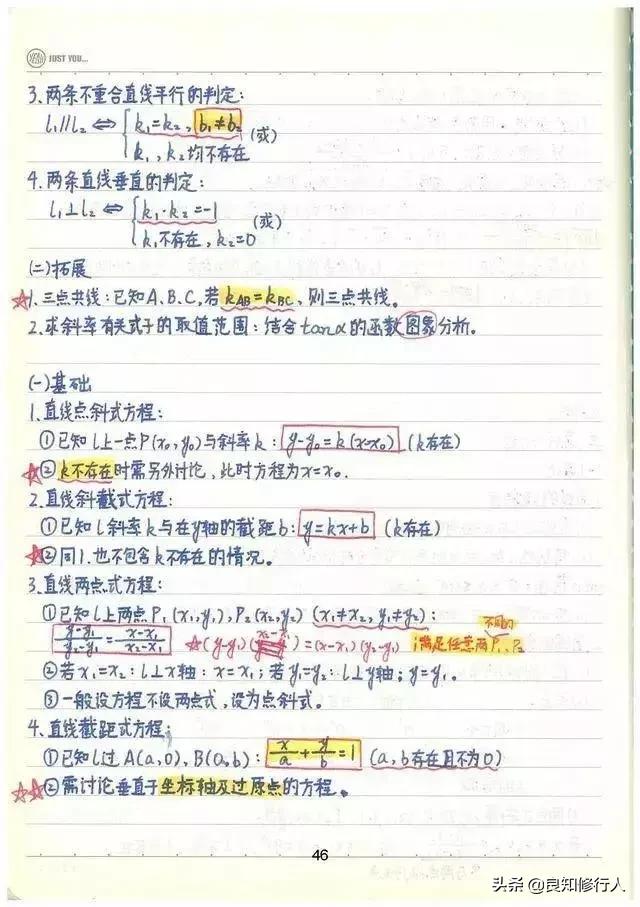 JUST YOU...
3.两条不重合直线平行的判定:
l₁∥l₂ ⇔ { k₁=k₂, b₁≠b₂ (或)
k₁,k₂均不存在
4.两条直线垂直的判定:
l₁⊥l₂ ⇔ { k₁·k₂=-1 (或)
k₁不存在,k₂=0
(二)拓展
☆1.三点共线:已知A、B、C,若k_AB=k_BC,则三点共线。
2.求斜率有关式子的取值范围:结合tanα的函数图象分析。
(一)基础
1.直线点斜式方程:
①已知l上一点P(x₀,y₀)与斜率k: y-y₀=k(x-x₀) (k存在)
☆②k不存在时需另外讨论,此时方程为x=x₀.
2.直线斜截式方程:
①已知l斜率k与在y轴的截距b: y=kx+b (k存在)
☆②同1.也不包含k不存在的情况。
3.直线两点式方程:
①已知l上两点P₁(x₁,y₁),P₂(x₂,y₂) (x₁≠x₂,y₁≠y₂):
(y-y₁)/(y₂-y₁)=(x-x₁)/(x₂-x₁) ☆(y-y₁)(x₂-x₁)=(x-x₁)(y₂-y₁) 满足任意两不同的P₁、P₂
②若x₁=x₂:l⊥x轴:x=x₁;若y₁=y₂:l⊥y轴;y=y₁.
③一般设方程不设两点式,设为点斜式。
4.直线截距式方程:
①已知l过A(a,0),B(0,b): x/a+y/b=1 (a,b存在且不为0)
☆☆②需讨论垂直于坐标轴及过原点的方程。
46
头条 @良知修行人